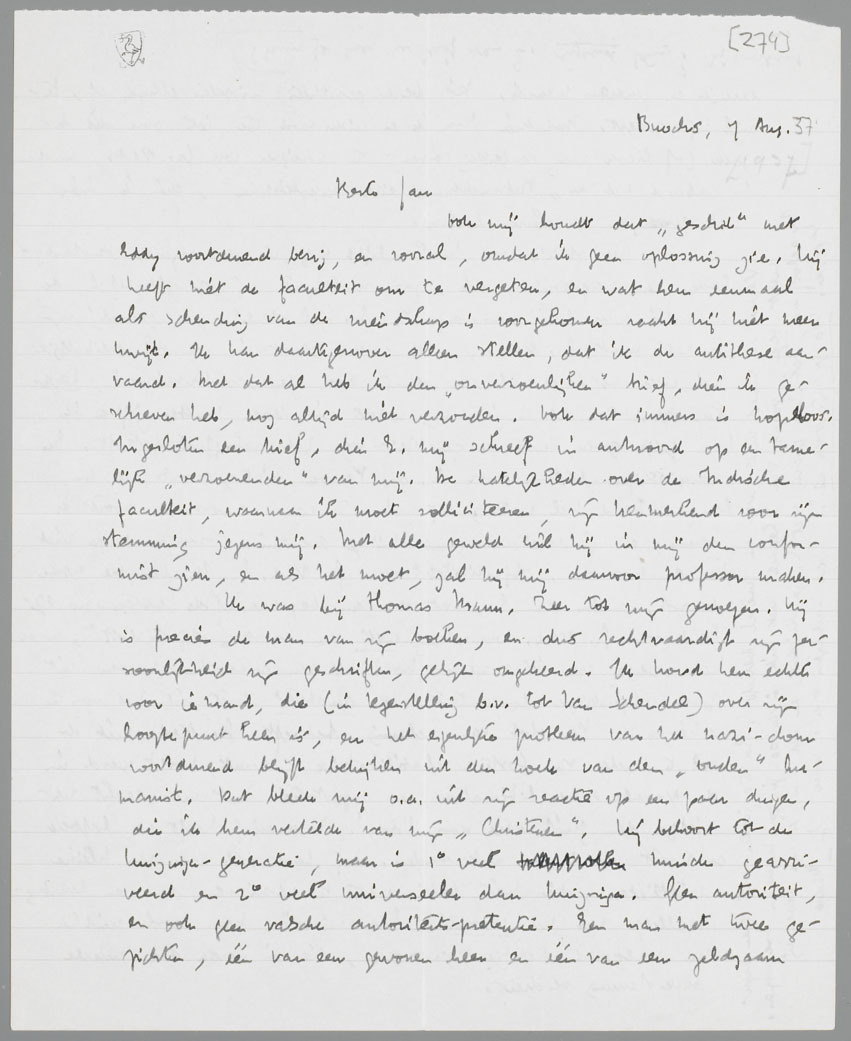 [274]
Buochs, 7 Aug. 37
Beste Jan
Ook mij houdt dat „geschil" met
Eddy voortdurend bezig, en vooral, omdat ik geen oplossing zie. Hij
heeft niet de faculteit om te vergeten, en wat hem eenmaal
als schending van de vriendschap is voorgekomen raakt hij niet meer
kwijt. Ik kan daartegenover alleen stellen, dat ik de antithese aan-
vaard. Met dat al heb ik den „onverzoenlijken" brief, dien ik ge-
schreven heb, nog altijd niet verzonden. Ook dat immers is hopeloos.
Ingesloten een brief, dien E. mij schreef in antwoord op een tame-
lijk „verzoenenden" van mij. De hatelijkheden over de Indische
faculteit, waarnaar ik moet solliciteeren, zijn kenmerkend voor zijn
stemming jegens mij. Met alle geweld wil hij in mij den confor-
mist zien, en als het moet, zal hij mij daarvoor professor maken.
Ik was bij Thomas Mann. Zeer tot mijn genoegen. Hij
is precies de man van zijn boeken, en dus rechtvaardigt zijn per-
soonlijkheid zijn geschriften, gelijk omgekeerd. Ik houd hem echter
voor iemand, die (in tegenstelling b.v. tot Van Schendel) over zijn
hoogtepunt heen is, en het eigenlijke probleem van het nazi-dom
voortdurend blijft bekijken uit den hoek van den „ouden" hu-
manist. Dat bleek mij o.a. uit zijn reactie op een paar dingen,
die ik hem vertelde van mijn „Christenen". Hij behoort tot de
Huizinga-generatie, maar is 1° veel minder gearri-
veerd en 2° veel universeeler dan Huizinga. Geen autoriteit,
en ook geen valsche autoriteits-pretentie. Een man met twee ge-
zichten, één van een gewonen heer en één van een zeldzaam